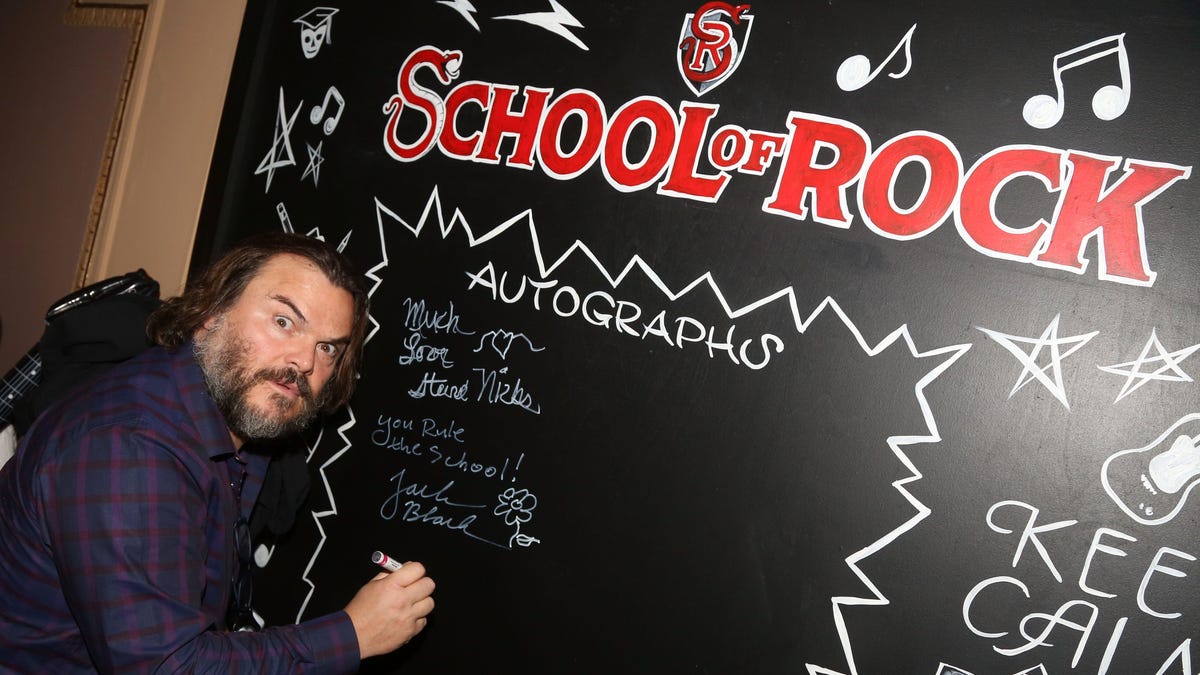 SR
SCHOOL OF ROCK
AUTOGRAPHS
Much
Love
Stevie Nicks
you Rule
the School!
Jack
Black
KEE
CAL